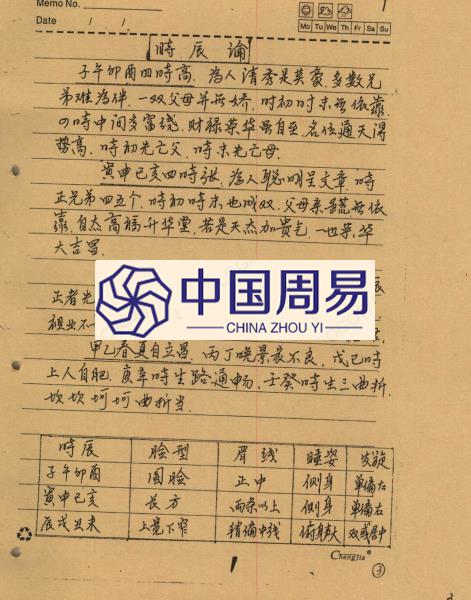 Memo No.
Date / /
Mo Tu We Th Fr Sa Su
時辰論
子午卯酉四時高. 為人清秀是英豪. 多数兄
弟难為伴. 一双父母并無娇. 时初时末無依靠.
の時中间多富线. 财禄荣华虽自至. 名位通天得
势高. 時初先亡父. 時末先亡母.
寅申己亥四時张. 為人聪明呈文章. 時
正兄弟四五个. 時初時末也成双. 父母亲無依
靠. 自杰高福升华堂. 若是天杰加贵气. 一世荣华
大吉昌.
中国周易
CHINA ZHOU YI
正者先
祖业不一
甲乙春夏自立昌. 丙丁晚景衰不良. 戊己时
上人自肥. 庚辛時生路通畅. 壬癸時生三曲折.
坎坎坷坷曲折当.
時辰 脸型 眉线 睡姿 发旋
子午卯酉 圆脸 正中 侧身 单偏左
寅申己亥 长方 两条以上 侧身 单偏右
辰戌丑未 上宽下窄 稍偏中线 俯身大 双或居中
Chengjia
1
③